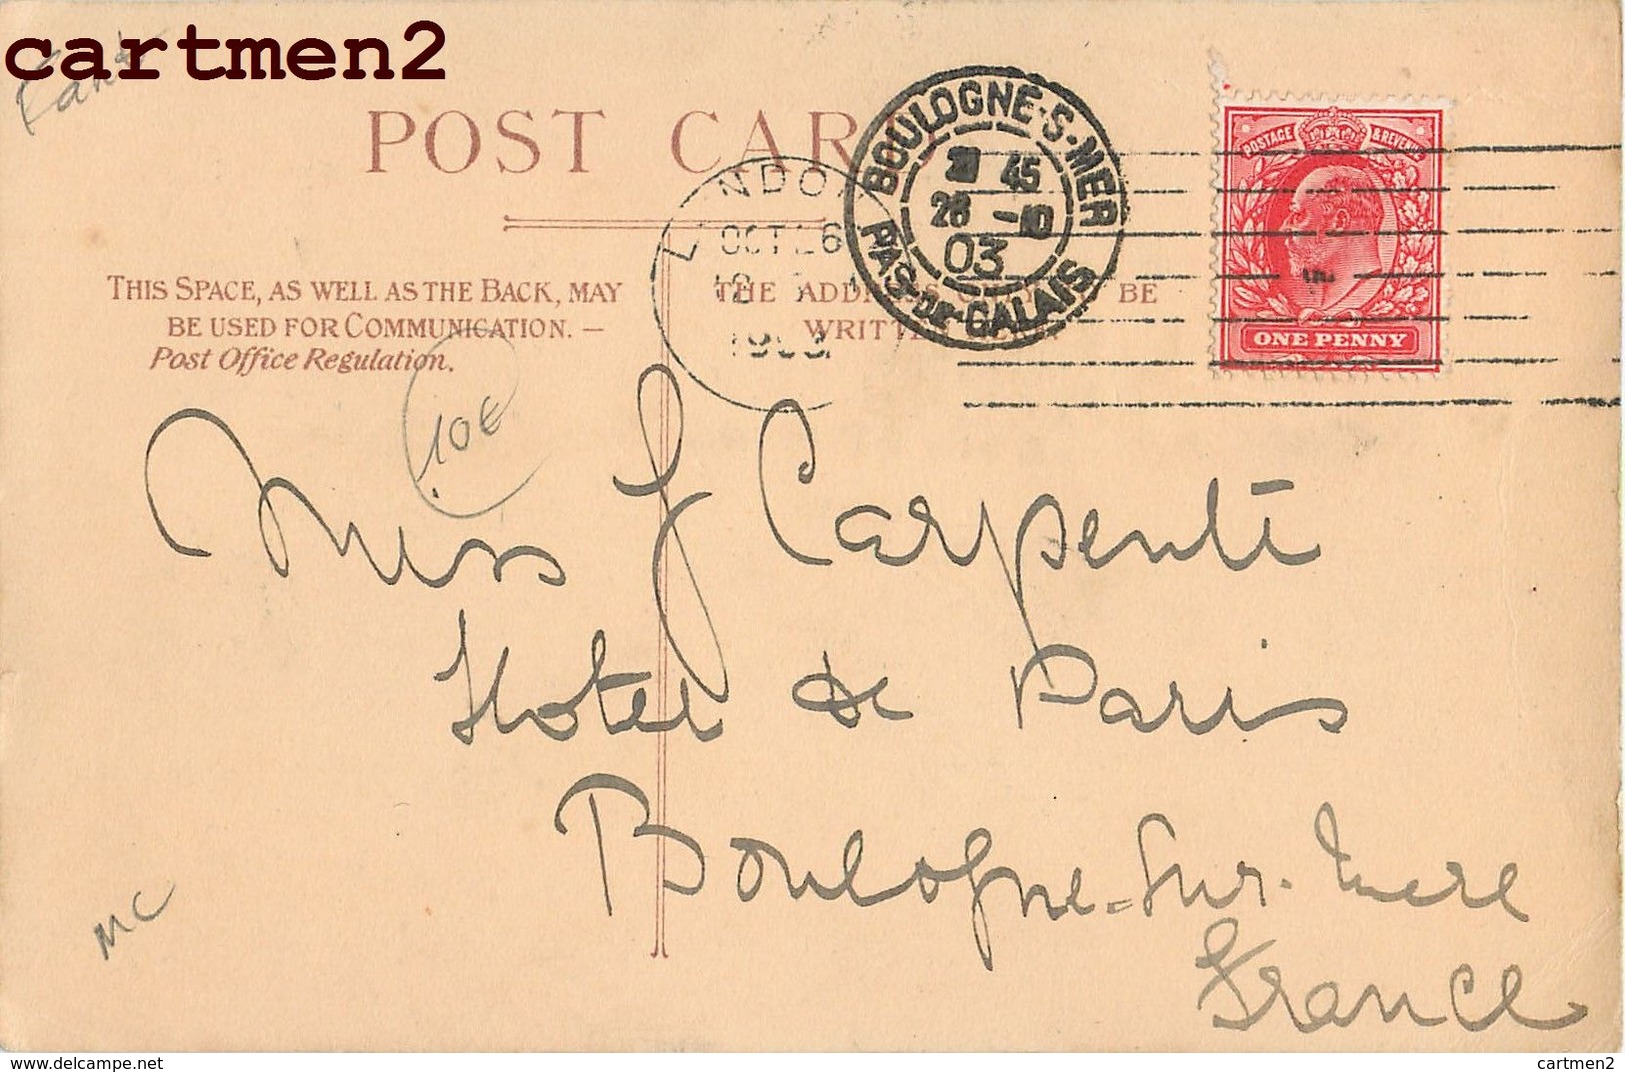 cartmen2
POST CARD
BOULOGNE-S-MER
45
26 -10
03
PAS-DE-CALAIS
OCT 26
POSTAGE & REVENUE
ONE PENNY
THIS SPACE, AS WELL AS THE BACK, MAY
BE USED FOR COMMUNICATION. —
Post Office Regulation.
THE ADDRESS BE
WRITTEN
10€
Miss J Carpenti
Hotel de Paris
Boulogne-Sur-mere
France
MC
www.delcampe.net
cartmen2